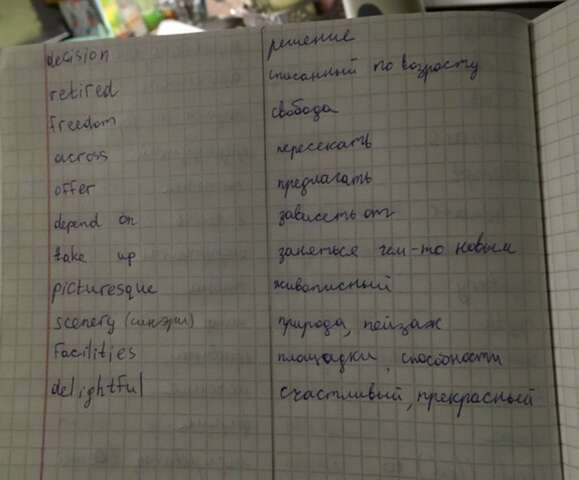 decision решение
retired списанный по возрасту
freedom свобода
across пересекать
offer предлагать
depend on зависеть от
take up заняться чем-то новым
picturesque живописный
scenery (синэри) природа, пейзаж
facilities площадки, способности
delightful счастливый, прекрасный